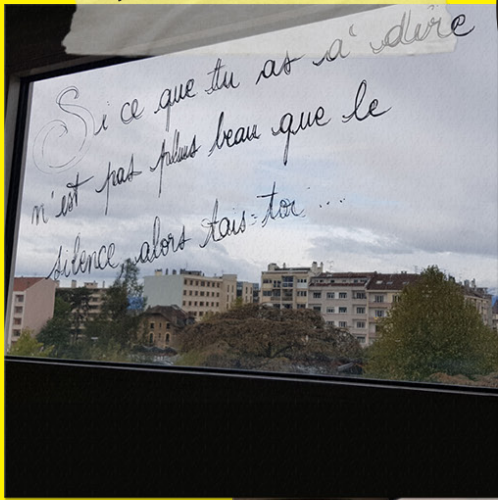 Si ce que tu as à dire
n'est pas plus beau que le
silence, alors tais-toi ...